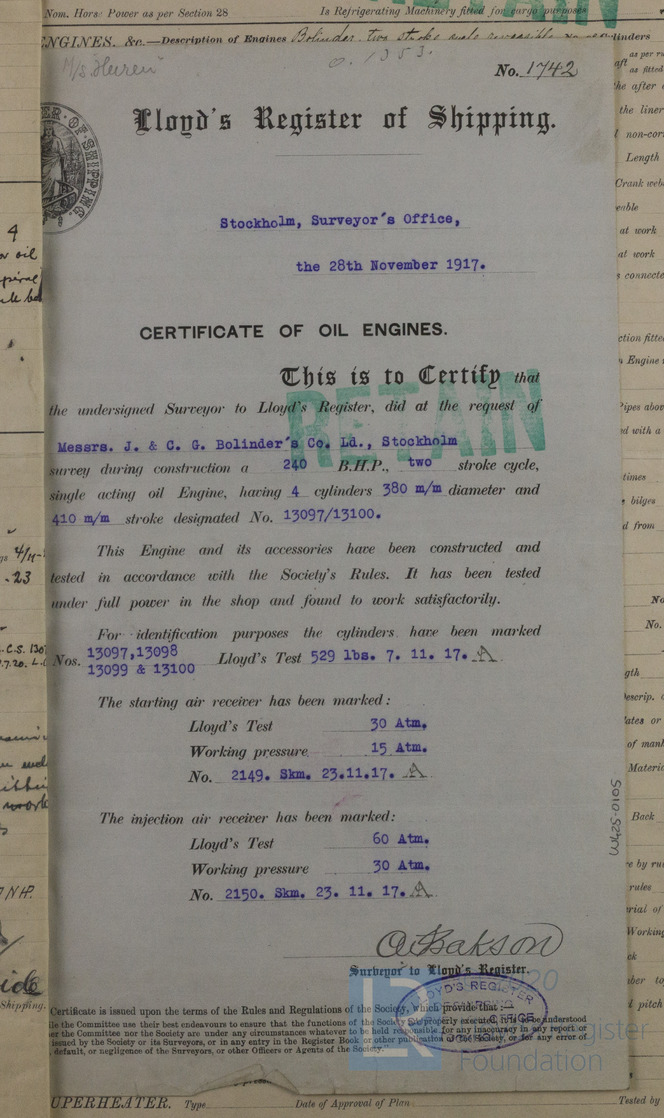 Nom. Horse Power as per Section 28
Is Refrigerating Machinery fitted for cargo purposes
ENGINES, &c.—Description of Engines Bolinder two stroke
linders
No. 1742
Lloyd's Register of Shipping.
Stockholm, Surveyor's Office,
the 28th November 1917.
CERTIFICATE OF OIL ENGINES.
RETAIN
This is to Certify that
the undersigned Surveyor to Lloyd's Register, did at the request of
Messrs. J. & C. G. Bolinder's Co. Ld., Stockholm
survey during construction a 240 B.H.P., two stroke cycle,
single acting oil Engine, having 4 cylinders 380 m/m diameter and
410 m/m stroke designated No. 13097/13100.
This Engine and its accessories have been constructed and
tested in accordance with the Society's Rules. It has been tested
under full power in the shop and found to work satisfactorily.
For identification purposes the cylinders have been marked
Nos. 13097,13098
13099 & 13100 Lloyd's Test 529 lbs. 7. 11. 17. A
The starting air receiver has been marked:
Lloyd's Test 30 Atm.
Working pressure 15 Atm.
No. 2149. Skm. 23.11.17. A
The injection air receiver has been marked:
Lloyd's Test 60 Atm.
Working pressure 30 Atm.
No. 2150. Skm. 23. 11. 17. A
W425-0105
Surveyor to Lloyd's Register.
LLOYD'S REGISTER
Certificate is issued upon the terms of the Rules and Regulations of the Society, which provide that:—
le the Committee use their best endeavours to ensure that the functions of the Society are properly executed, it is to be understood
er the Committee nor the Society are under any circumstances whatever to be held responsible for any inaccuracy in any report or
issued by the Society or its Surveyors, or in any entry in the Register Book or other publication of the Society, or for any error of
default, or negligence of the Surveyors, or other Officers or Agents of the Society.
LR
Foundation
UPERHEATER. Type
Date of Approval of Plan
Tested by